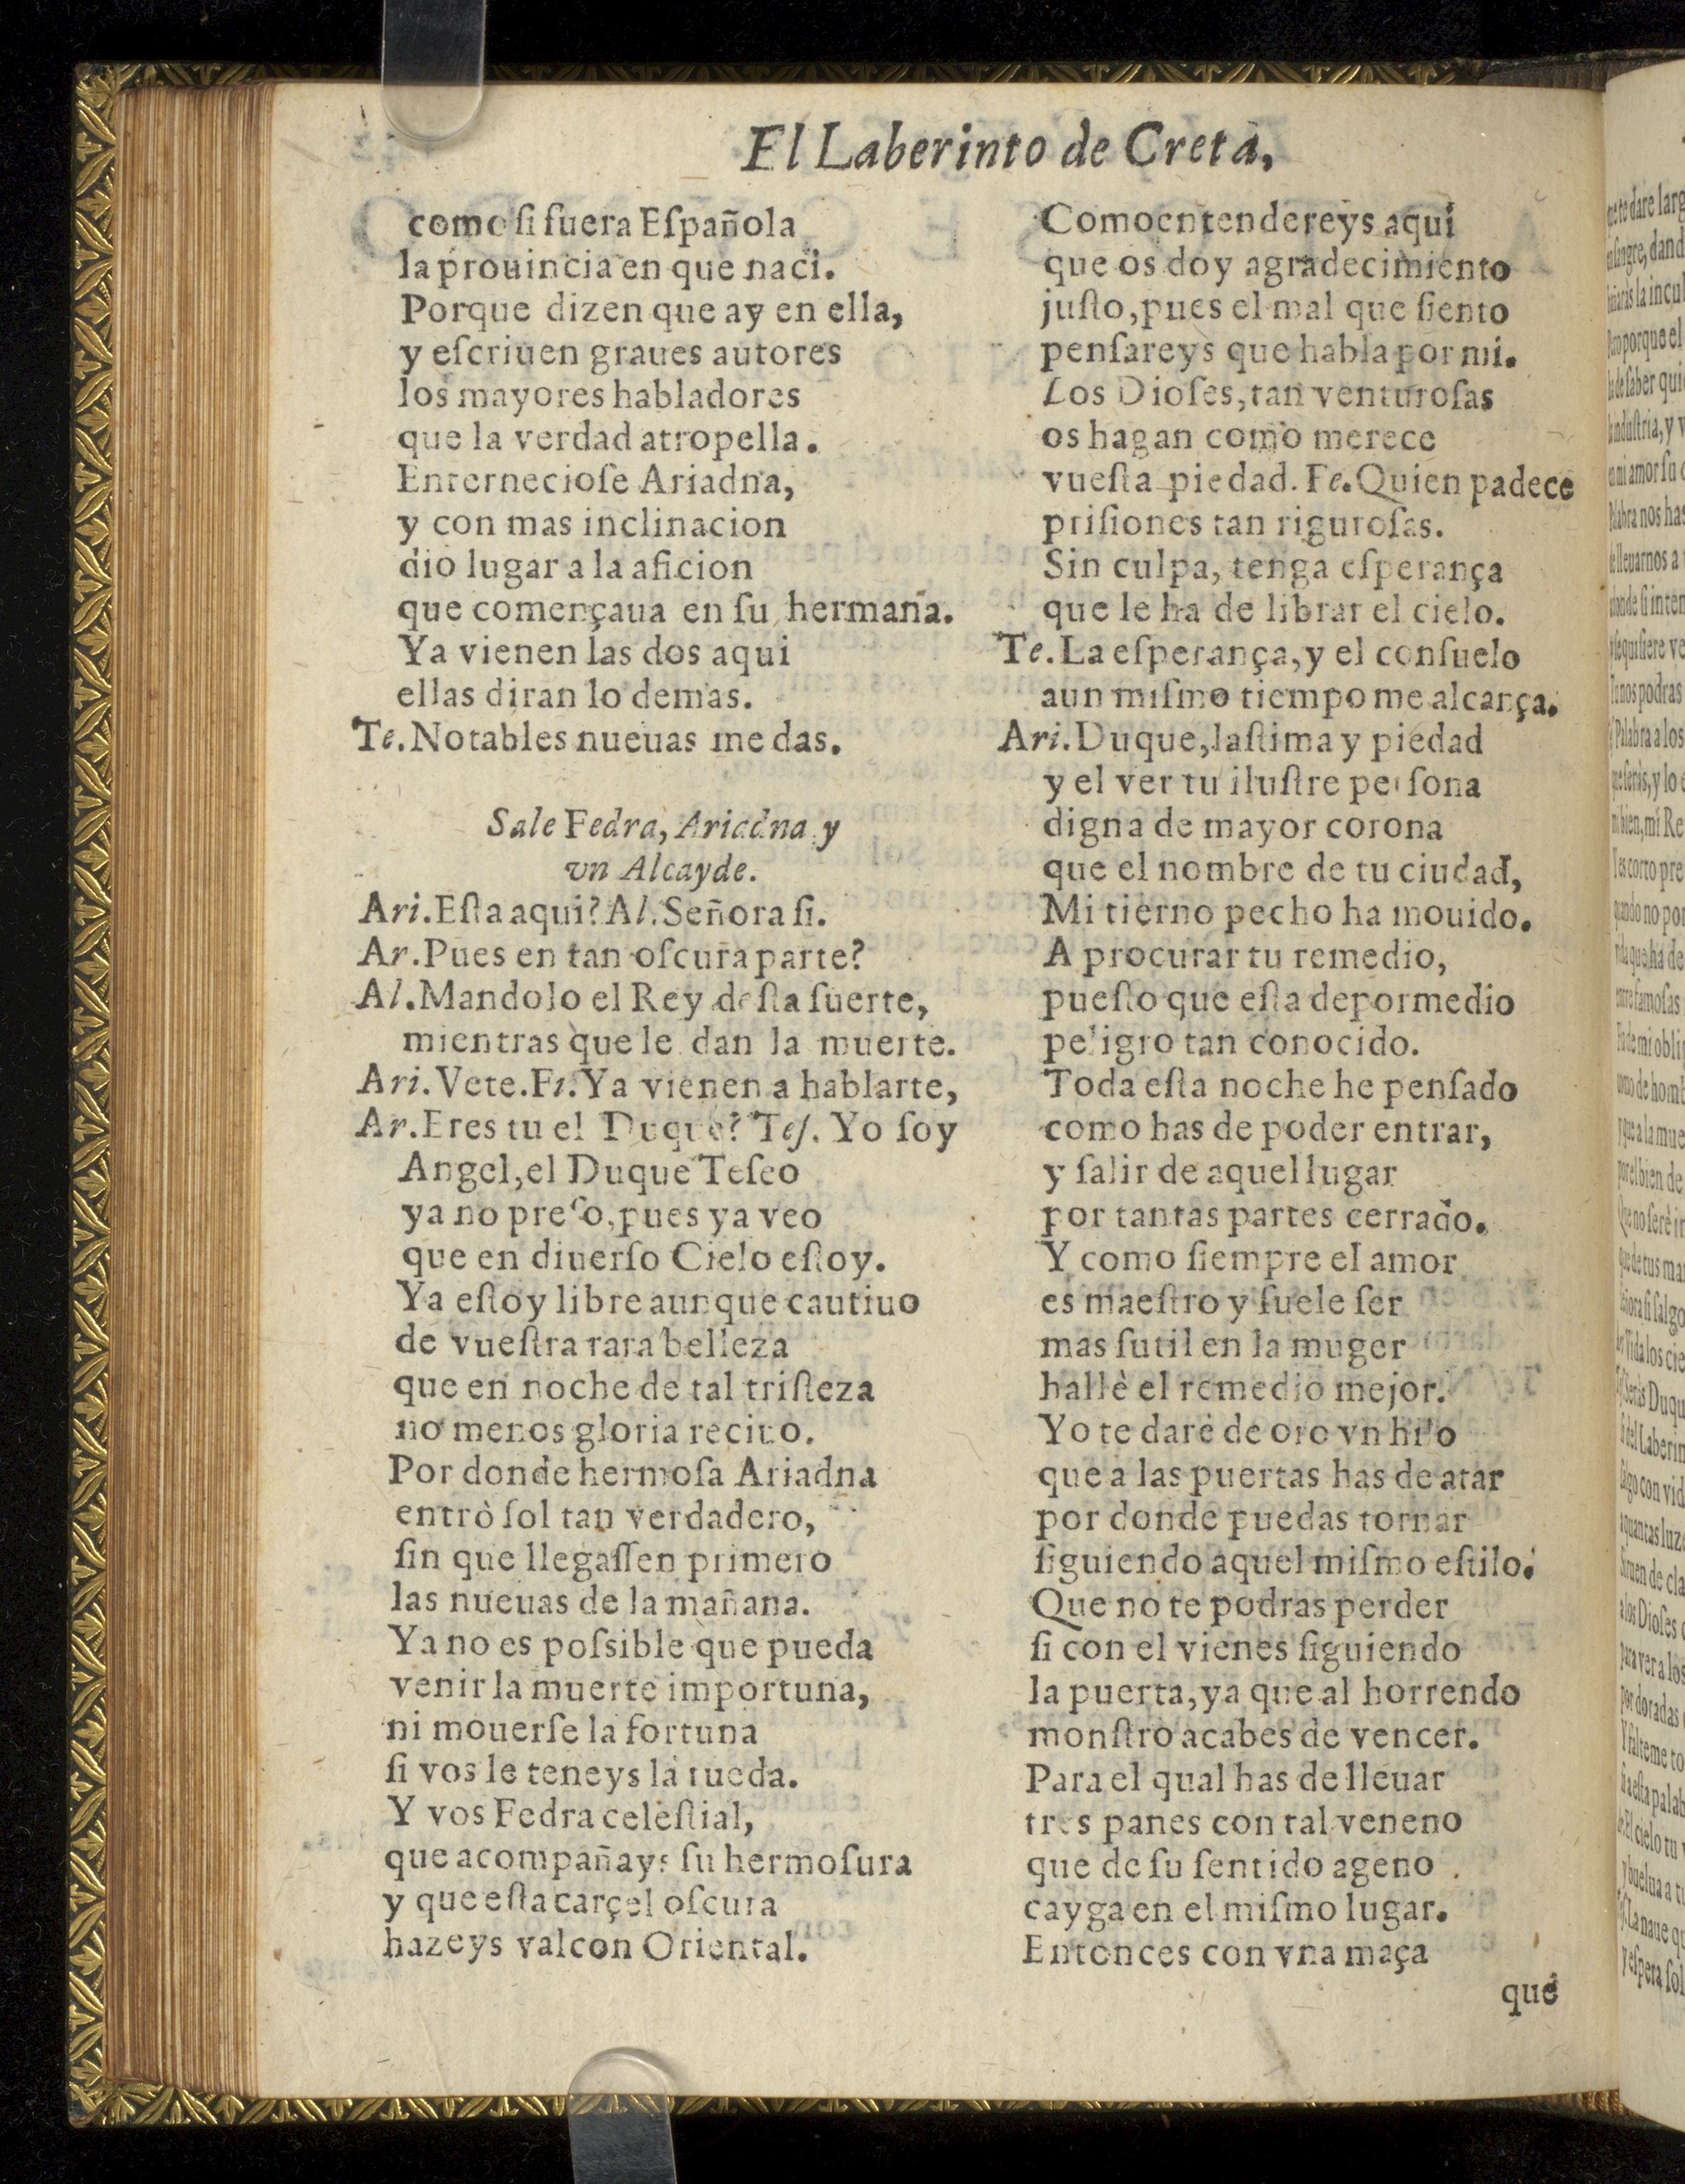 El Laberinto de Creta,
como ſi fuera Eſpañola
la prouincia en que naci.
Porque dizen que ay en ella,
y eſcriuen graues autores
los mayores habladores
que la verdad atropella.
Enternecioſe Ariadna,
y con mas inclinacion
dio lugar a la aficion
que començaua en ſu hermana.
Ya vienen las dos aqui
ellas diran lo demas.
Te. Notables nueuas me das.
Sale Fedra, Ariadna y
vn Alcayde.
Ari. Eſta aqui? Al. Señora ſi.
Ar. Pues en tan oſcura parte?
Al. Mandolo el Rey deſta ſuerte,
mientras que le dan la muerte.
Ari. Vete. Fi. Ya vienen a hablarte,
Ar. Eres tu el Duque? Teſ. Yo ſoy
Angel, el Duque Teſeo
ya no preſo, pues ya veo
que en diuerſo Cielo eſtoy.
Ya eſtoy libre aunque cautiuo
de vueſtra rara belleza
que en noche de tal triſteza
no menos gloria reciuo.
Por donde hermoſa Ariadna
entrò ſol tan verdadero,
ſin que llegaſſen primero
las nueuas de la mañana.
Ya no es poſsible que pueda
venir la muerte importuna,
ni mouerſe la fortuna
ſi vos le teneys la rueda.
Y vos Fedra celeſtial,
que acompañays ſu hermoſura
y que eſta carçel oſcura
hazeys valcon Oriental.
Como entendereys aqui
que os doy agradecimiento
juſto, pues el mal que ſiento
penſareys que habla por mi.
Los Dioſes, tan venturoſas
os hagan como merece
vueſta piedad. Fe. Quien padece
priſiones tan riguroſas.
Sin culpa, tenga eſperança
que le ha de librar el cielo.
Te. La eſperança, y el conſuelo
aun miſmo tiempo me alcança.
Ari. Duque, laſtima y piedad
y el ver tu iluſtre perſona
digna de mayor corona
que el nombre de tu ciudad,
Mi tierno pecho ha mouido.
A procurar tu remedio,
pueſto que eſta depormedio
peligro tan conocido.
Toda eſta noche he penſado
como has de poder entrar,
y ſalir de aquel lugar
por tantas partes cerrado.
Y como ſiempre el amor
es maeſtro y ſuele ſer
mas ſutil en la muger
hallè el remedio mejor.
Yo te darè de oro vn hilo
que a las puertas has de atar
por donde puedas tornar
ſiguiendo aquel miſmo eſtilo.
Que no te podras perder
ſi con el vienes ſiguiendo
la puerta, ya que al horrendo
monſtro acabes de vencer.
Para el qual has de lleuar
tres panes con tal veneno
que de ſu ſentido ageno
cayga en el miſmo lugar.
Entonces con vna maça
que